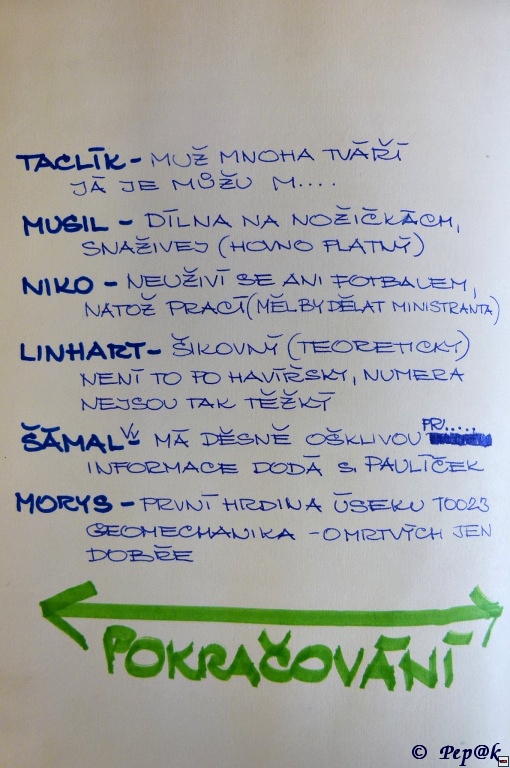 TACLÍK - MUŽ MNOHA TVÁŘÍ
JÁ JE MŮŽU M....
MUSIL - DÍLNA NA NOŽIČKÁCH,
SNAŽIVEJ (HOVNO PLATNÝ)
NIKO - NEUŽIVÍ SE ANI FOTBALEM,
NATOŽ PRACÍ (MĚL BY DĚLAT MINISTRANTA)
LINHART - ŠIKOVNÝ (TEORETICKY)
NENÍ TO PO HAVÍŘSKY, NUMERA
NEJSOU TAK TĚŽKÝ
PR.....
ŠÁMAL - MÁ DĚSNĚ OŠKLIVOU
INFORMACE DODÁ S. PAULÍČEK
MORYS - PRVNÍ HRDINA ÚSEKU T0023
GEOMECHANIKA - O MRTVÝCH JEN
DOBŘE
POKRAČOVÁNÍ
© Pep@k